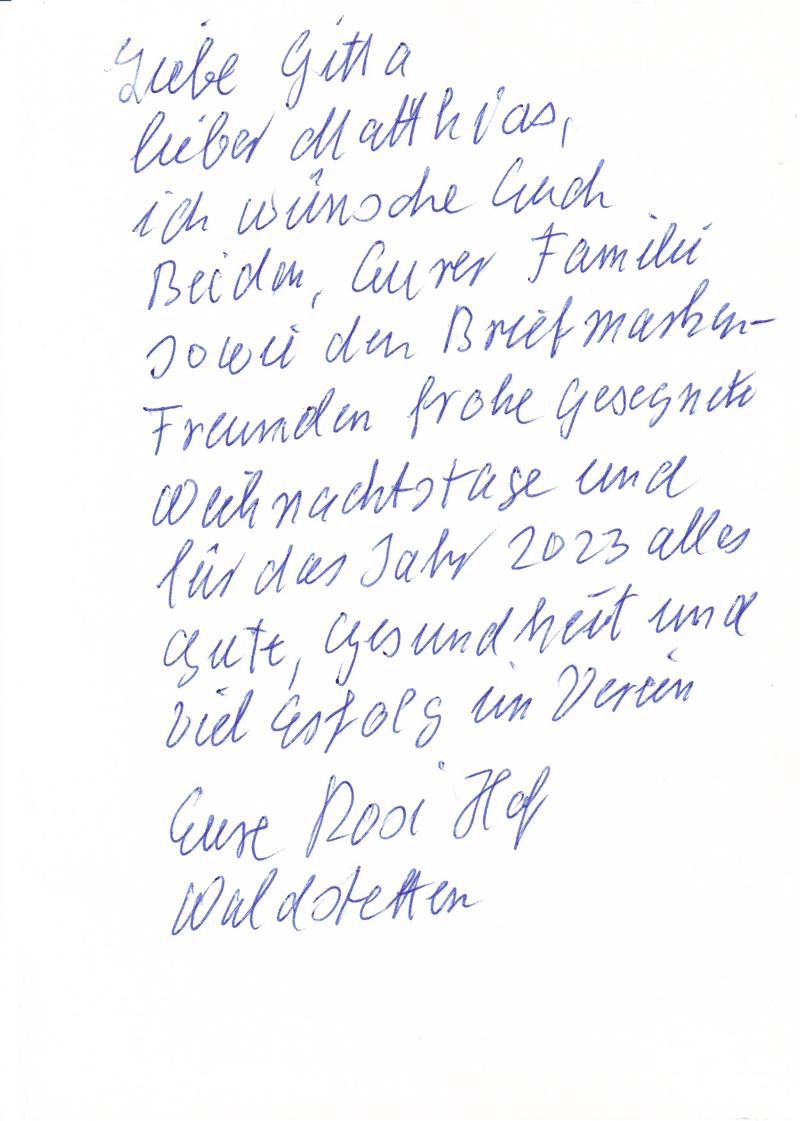 Liebe Gitta
lieber Matthias,
ich wünsche Euch
Beiden, Eurer Familie
sowie den Briefmarken-
Freunden frohe gesegnete
Weihnachtstage und
für das Jahr 2023 alles
Gute, Gesundheit und
viel Erfolg im Verein
Eure Rosi Hof
Waldstetten